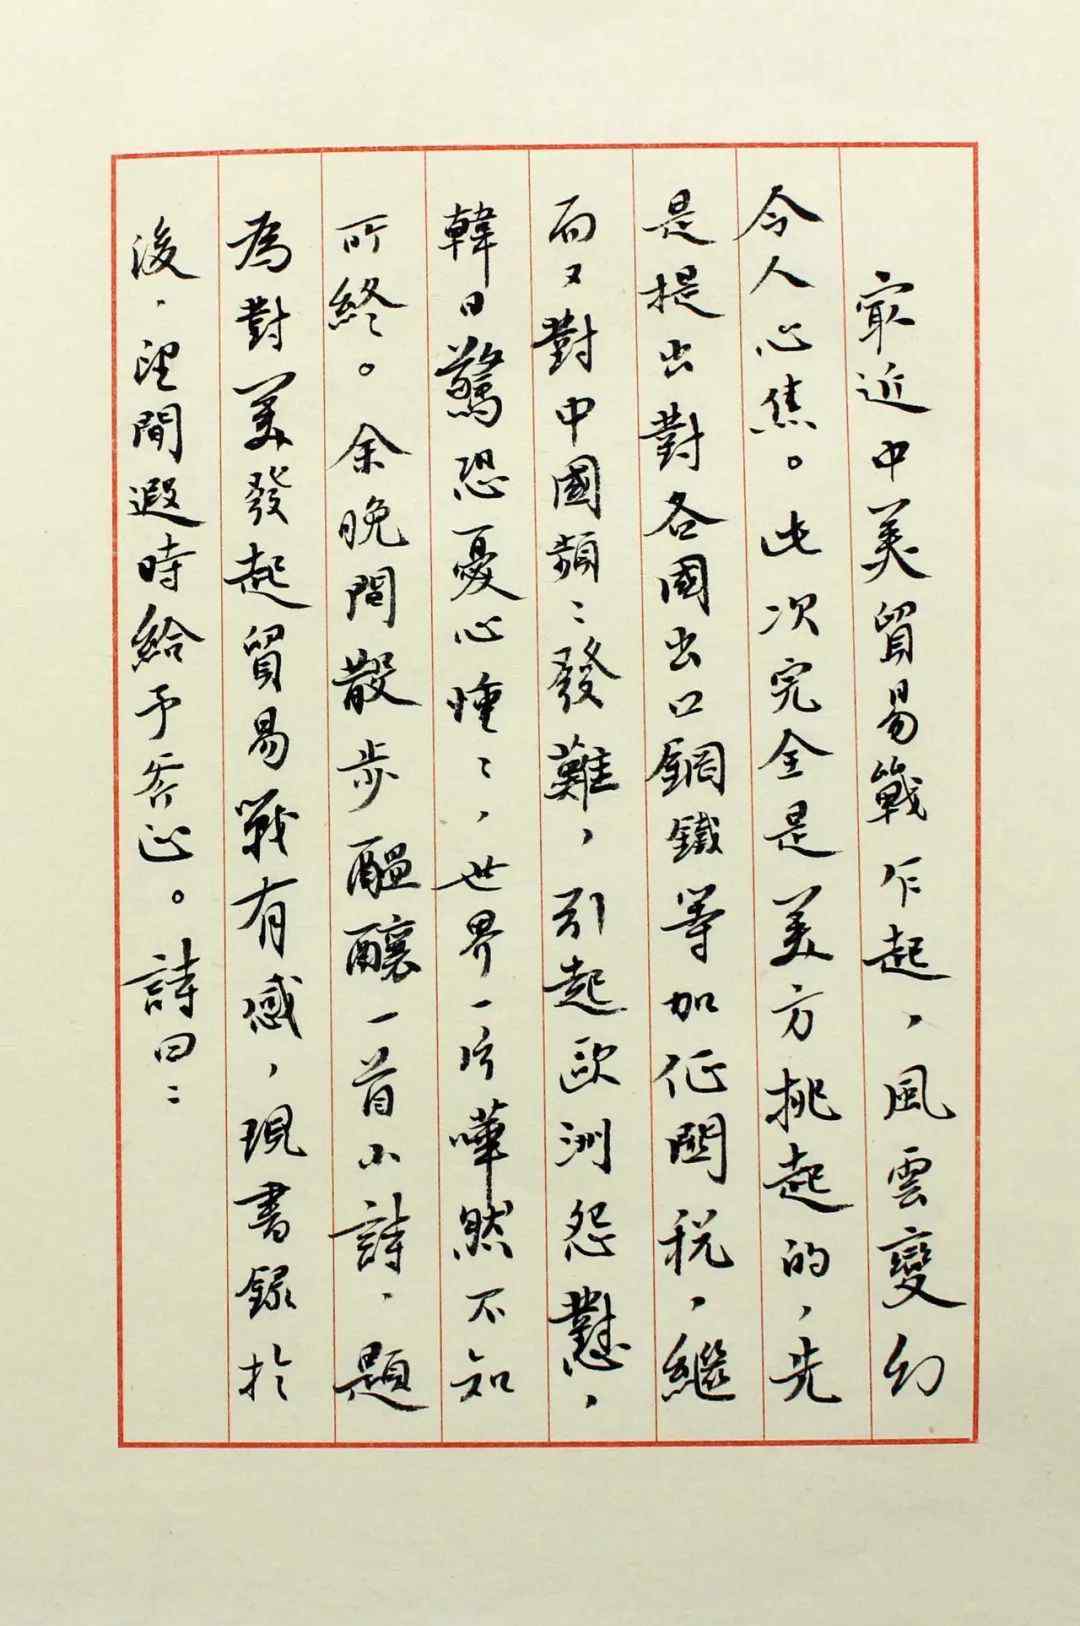 最近中美貿易戰乍起，風雲變幻
令人心焦。此次完全是美方挑起的，先
是提出對各國出口鋼鐵等加征關税，繼
而又對中國頻頻發難，引起歐洲怨懟，
韓日驚恐憂心忡忡，世界一片嘩然不知
所終。余晚間散步醖釀一首小詩，題
為對美發起貿易戰有感，現書録於
後，望閒遐時給予斧正。詩曰：